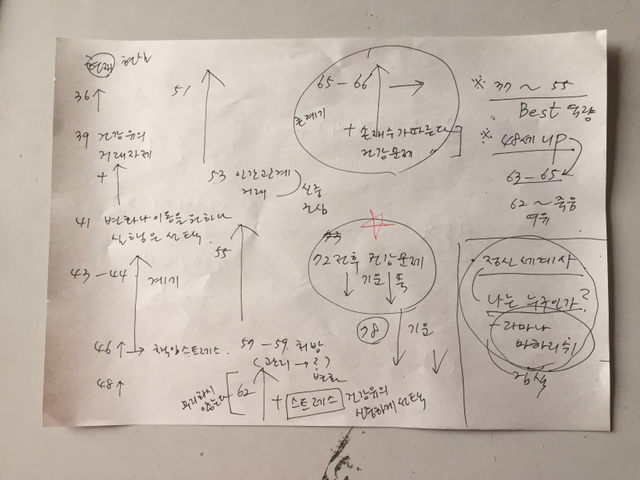 36 ↑
39 건강유의
거래자제
+
41 변화나 이동을 원하나
실행은 선택.
43-44 계기
46 ↑ → 책임스트레스.
48 ↑
51
53 인간관계
거래
신중
조심
55
57-59 처방
(관리 → ?)
변화
무리하지
않는다
62
+ 스트레스 건강유의
신중하게 선택
65-66 →
+ 손재수가따른다
건강문제
72전후 건강문제
기운 뚝
78
기운
※ 37 ~ 55
Best 역량
※ 48세 up
63-65
62 ~ 죽음
· 정신세계사
나는 누구인가?
- 라마나
마하리쉬
검색